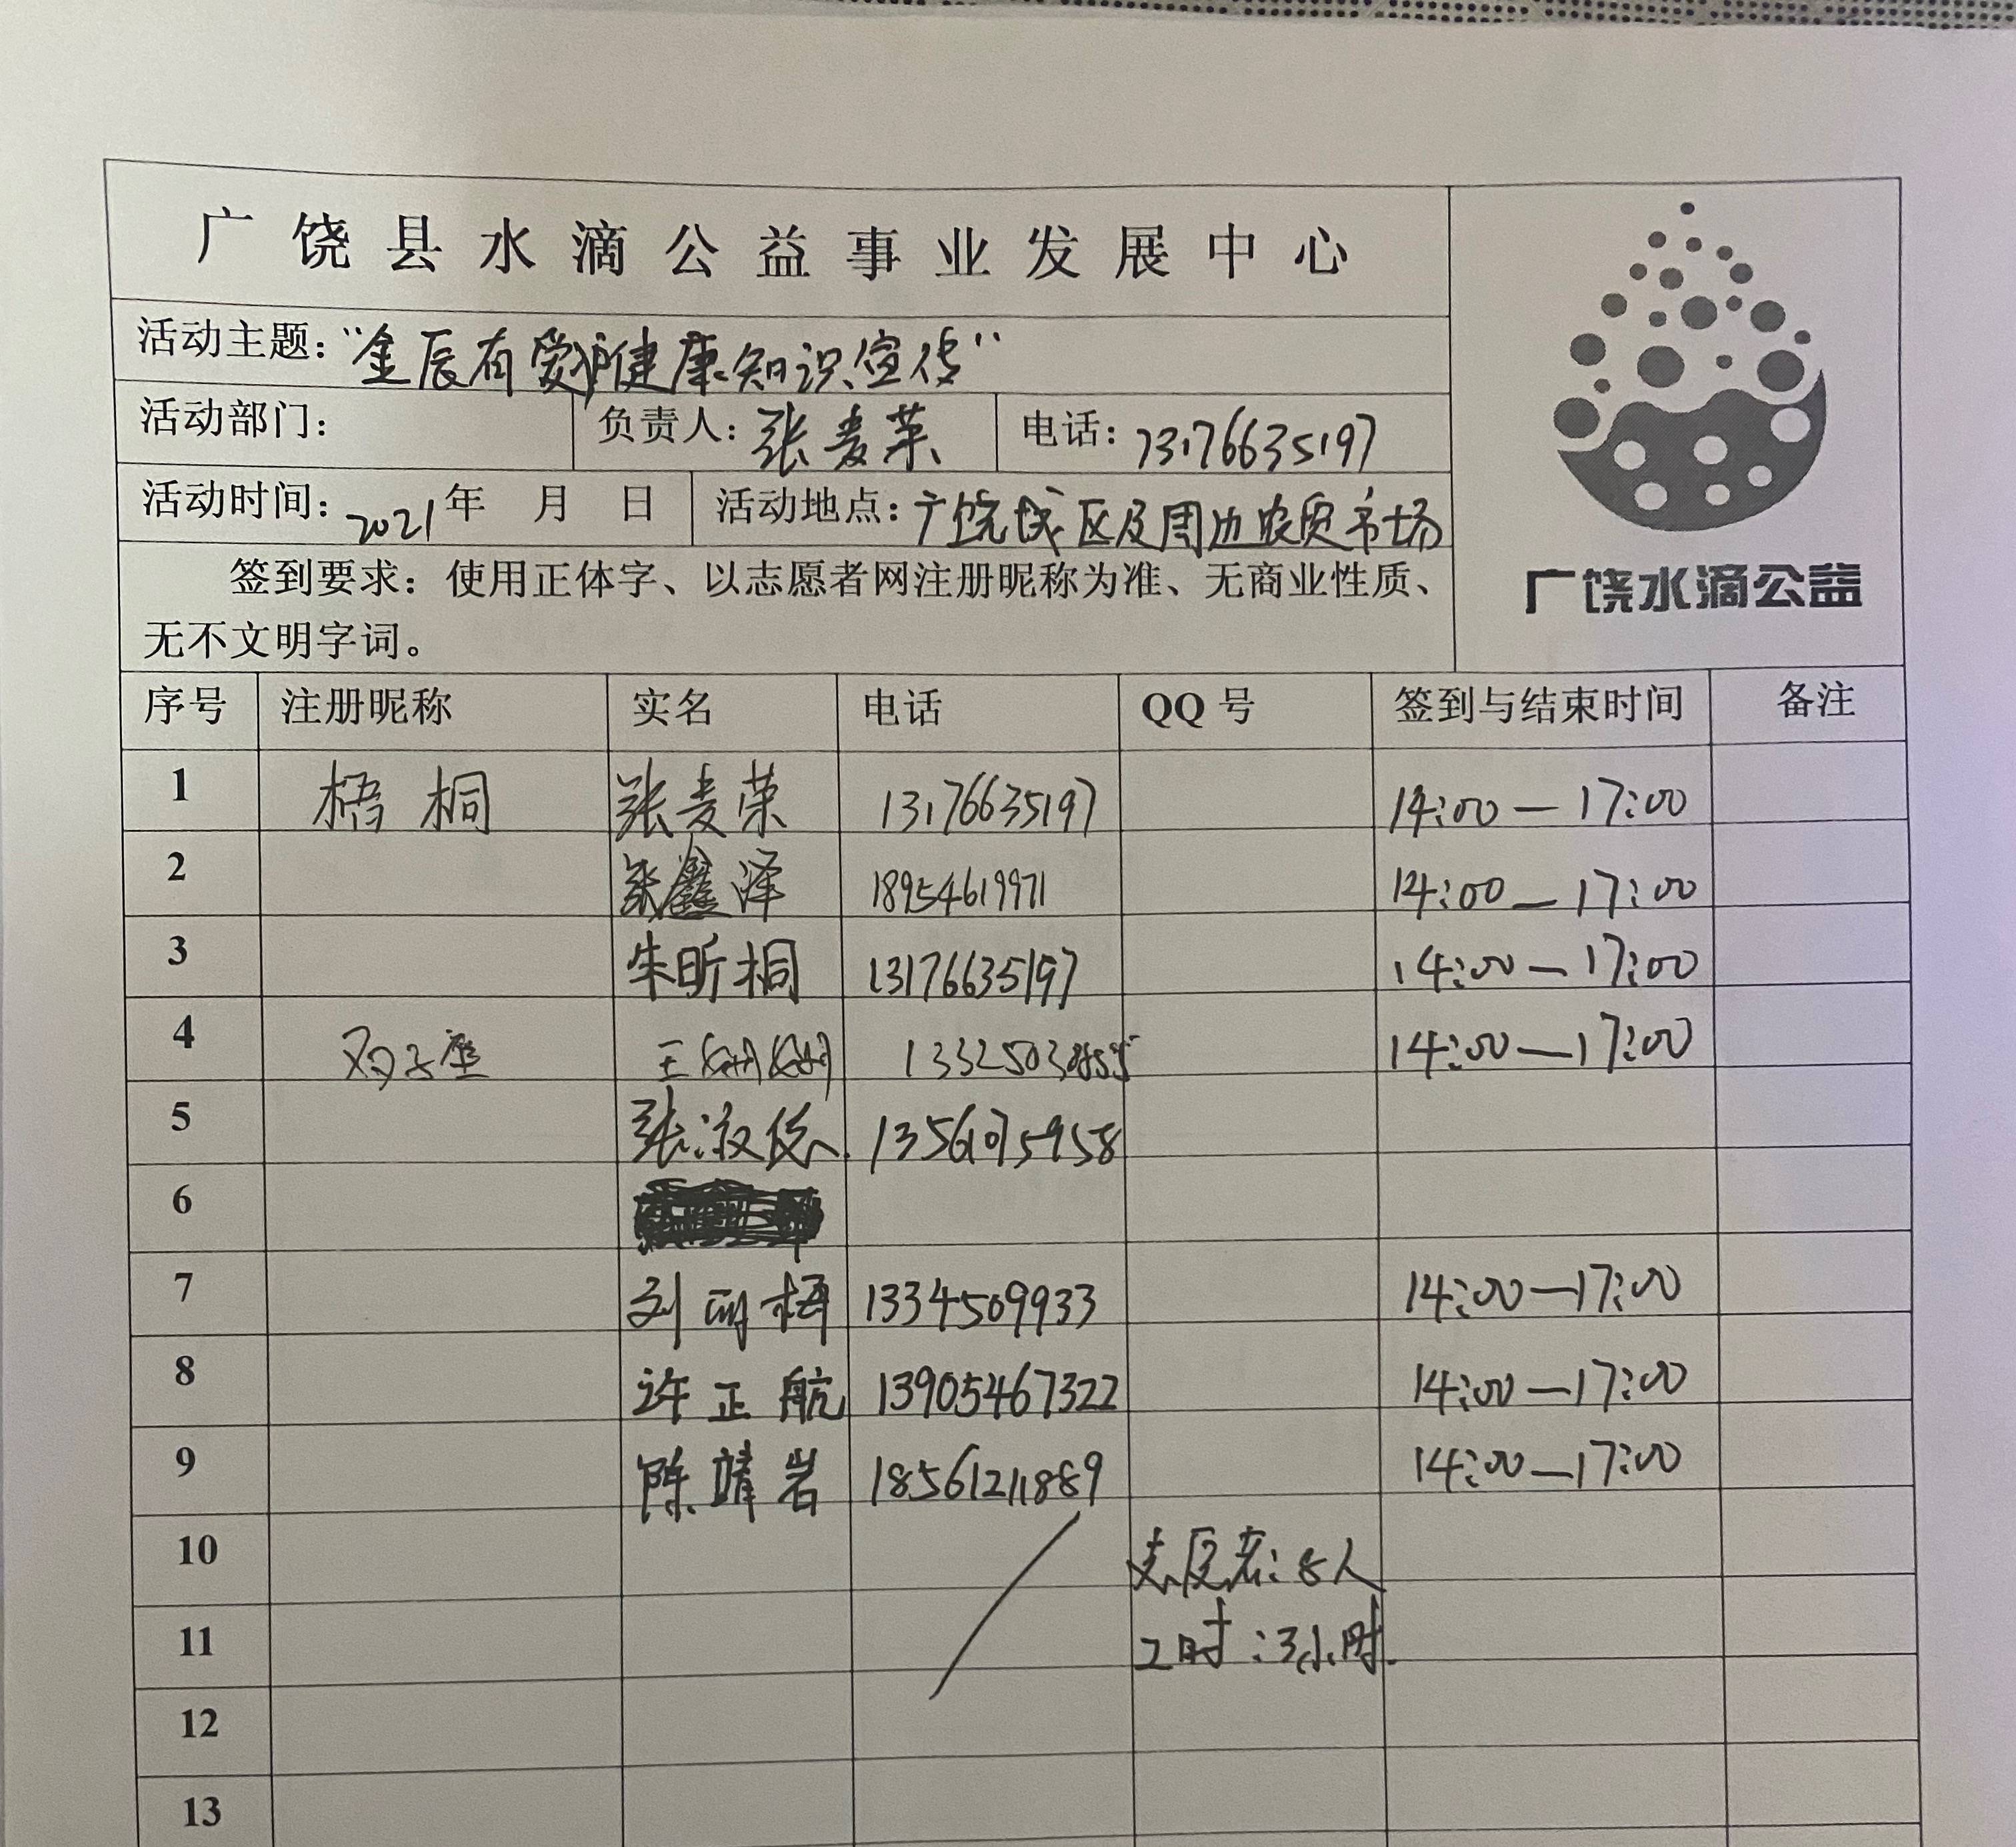 广饶县水滴公益事业发展中心
活动主题：“金辰有爱 健康知识宣传”
活动部门： 负责人：张麦荣 电话：13176635197
活动时间：2021年 月 日 活动地点：广饶城区及周边农贸市场
签到要求：使用正体字、以志愿者网注册昵称为准、无商业性质、
无不文明字词。
广饶水滴公益
序号 注册昵称 实名 电话 QQ号 签到与结束时间 备注
1 梧桐 张麦荣 13176635197 14:00—17:00
2 张鑫泽 18954619971 14:00—17:00
3 朱昕桐 13176635197 14:00—17:00
4 双子座 王姗姗 14:00—17:00
5 张淑 13561075958
6
7 刘 梧 13345099933 14:00—17:00
8 许正航 13905467322 14:00—17:00
9 陈靖岩 18561211889 14:00—17:00
10 志愿者：8人
11 工时：3小时.
12
13